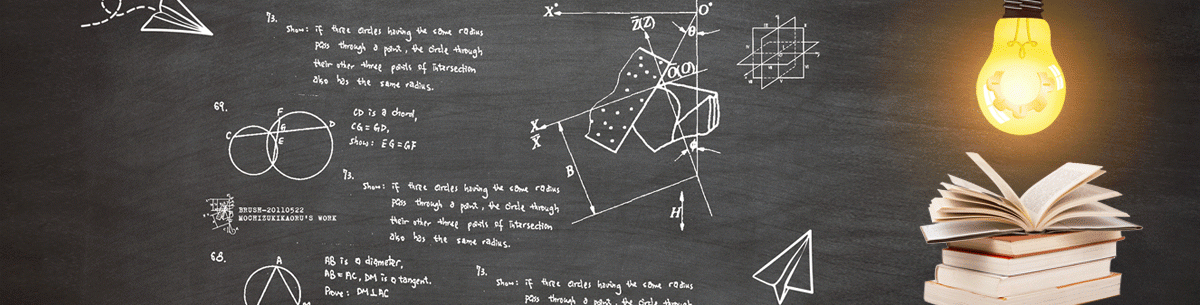 73.
Show: if three circles having the same radius
pass through a point, the circle through
their other three pairs of intersection
also has the same radius.
X°
O°
Z̄(Z)
θ
Ō(O)
X
X̄
B
H
φ
69.
C
F
G
D
E
CD is a chord,
CG = GD,
Show: EG = GF
73.
Show: if three circles having the same radius
pass through a point, the circle through
their other three pairs of intersection
also has the same radius.
BRUSH-20110522
MOCHIZUKIKAORU'S WORK
68.
A
AB is a diameter,
AB = AC, DM is a tangent.
Prove: DM⊥AC
73.
Show: if three circles having the same radius
pass through a point, the circle through